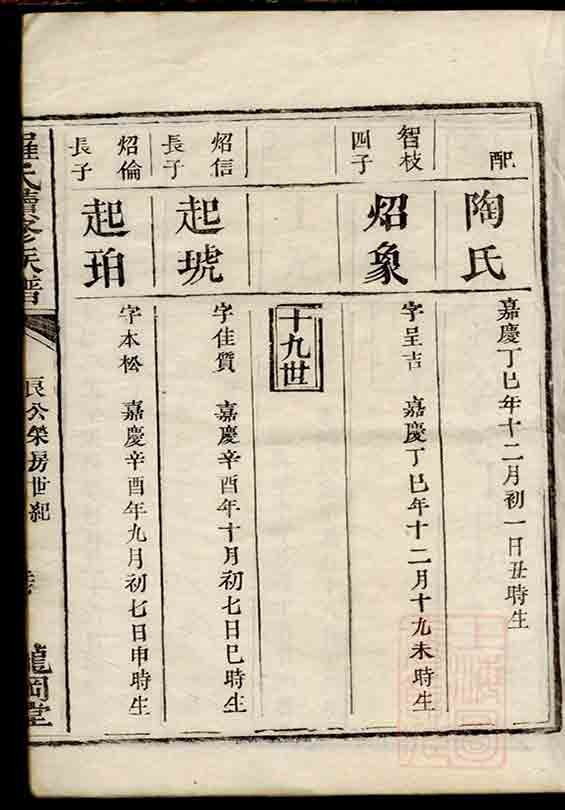 配
陶氏
嘉慶丁巳年十二月初一日丑時生
智枝
四子
炤象
字呈吉　嘉慶丁巳年十二月十九未時生
十九世
炤信
長子
起琥
字佳質　嘉慶辛酉年十月初七日巳時生
炤倫
長子
起珀
字本松　嘉慶辛酉年九月初七日申時生
羅氏續修族譜
良公榮房世紀
龍岡堂